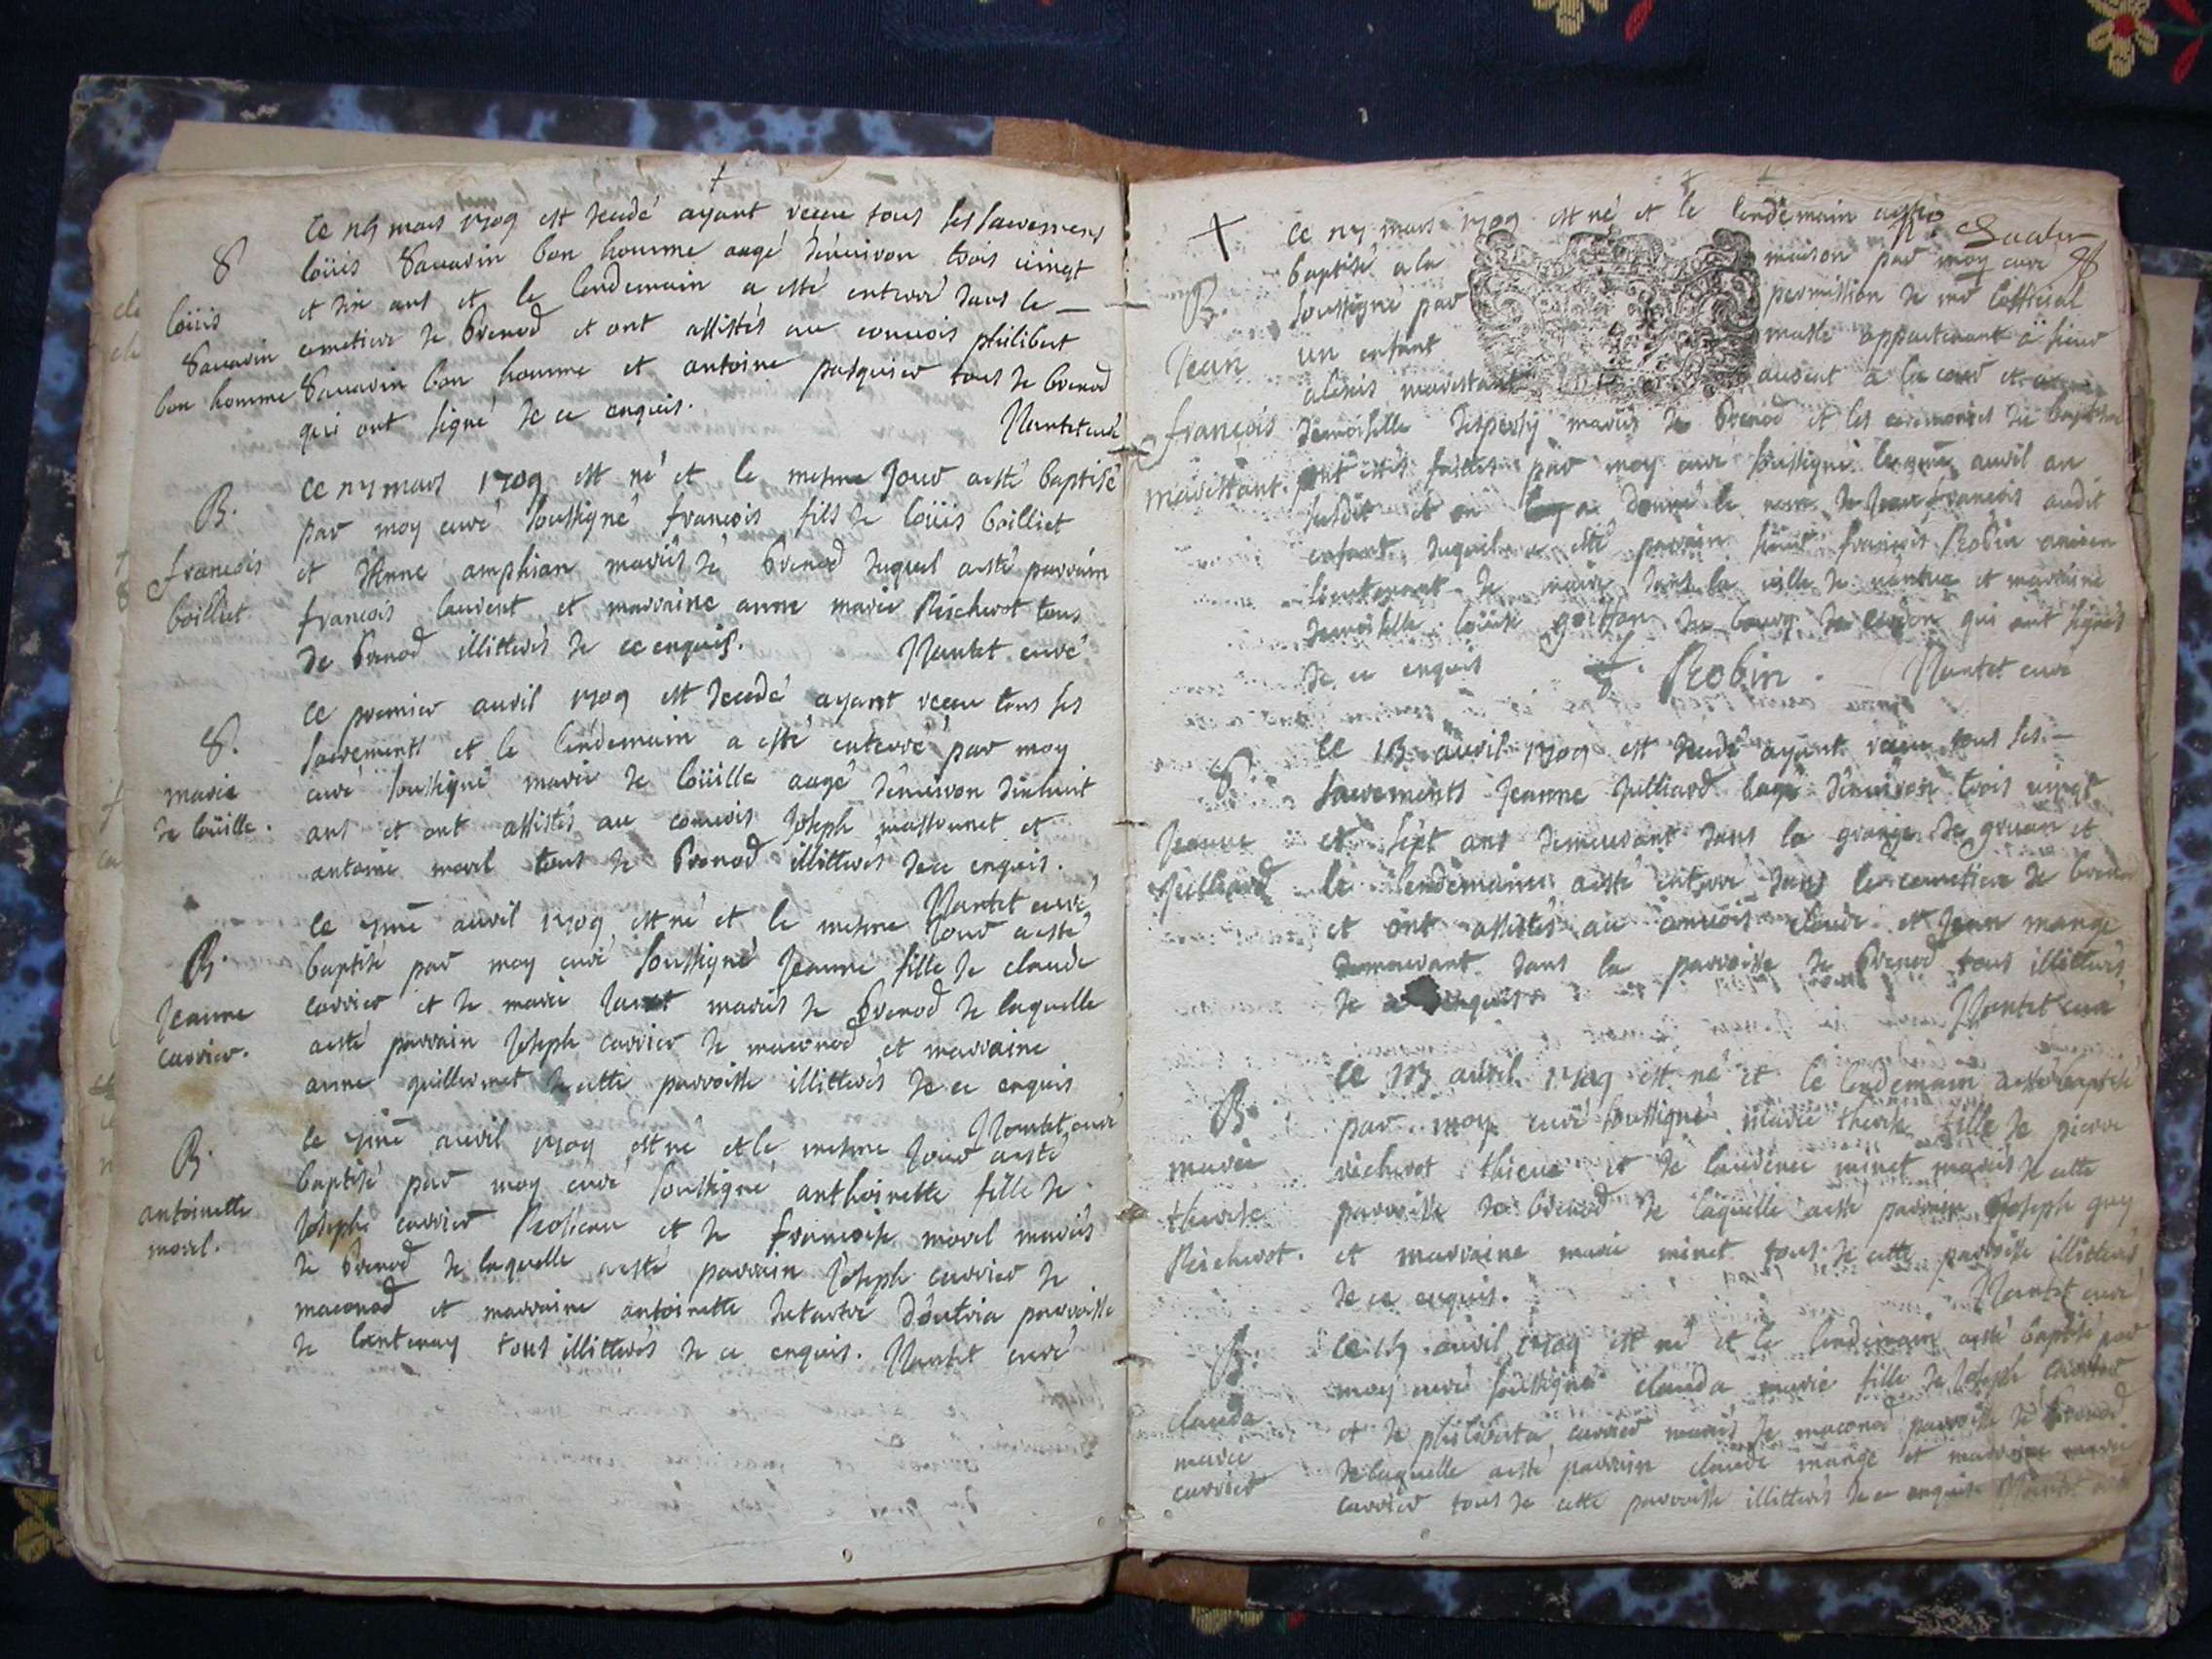 S
Loüis
Sauarin
bon homme
Ce mars 1709 est decedé ayant receu tous ses sacremens
loüis Sauarin bon homme aagé d'enuiron trois uingt
et dix ans et le lendemain a esté enterré dans le
cemetiere de Brenod et ont assistés au conuois philibert
Sauarin bon homme et antoine pasquier tous de brenod
qui ont signé de ce enquis.
Nantet curé
B.
françois
bailliet.
Ce mars 1709 est né et le mesme Jour a esté baptisé
par moy curé soussigné françois fils de loüis bailliet
et d'Anne ampliran mariés de Brenod duquel a esté parrain
françois laurent et marraine anne marie Richerot tous
de Brenod illitterés de ce enquis. Nantet curé
S.
marie
de loüille.
Ce premier auril 1709 est decedé ayant receu tous ses
sacrements et le lendemain a esté enterré par moy
curé soussigné marie de loüille aagé d'enuiron dixhuit
ans et ont assistés au conuois Joseph massonnet et
antoine morel tous de Brenod illitterés de ce enquis.
Nantet curé
B.
Jeanne
carrier.
Ce auril 1709 est né et le mesme Jour a esté
baptisé par moy curé soussigné Jeanne fille de claude
carrier et de marie mariés de Brenod de laquelle
a esté parrain Joseph carrier de maconod et marraine
anne guillermet de cette parroisse illitterés de ce enquis
Nantet curé
B.
antoinette
morel.
Ce auril 1709 est né et le mesme Jour a esté
baptisé par moy curé soussigné anthoinette fille de
Joseph carrier et de françoise morel mariés
de Brenod de laquelle a esté parrain Joseph carrier de
maconod et marraine antoinette d'outria parroisse
de lantenay tous illitterés de ce enquis. Nantet curé
B.
Jean
françois
marestant.
Ce mars 1709 est né et le lendemain a esté
baptisé a la maison par moy curé
soussigné par permission de mr l'official
un enfant masle appartenant a sieur
alexis marestant a la cour et a
demoiselle mariés de Brenod et les ceremonies du baptesme
ont estés faittes par moy curé soussigné le auril an
susdit et on luy a donné le nom de Jean françois audit
enfant, duquel a esté parrain sieur françois Robin ancien
lieutenant de maire dans la uille de nantua et marraine
demoiselle loüise du bourg de cerdon qui ont signés
de ce enquis f. Robin. Nantet curé
S.
Jeanne
Julliard
Ce 13 auril 1709 est decedé ayant receu tous ses
sacrements Jeanne Julliard aagé d'enuiron trois uingt
et sept ans demeurant dans la grange de gruan et
le lendemain a esté enterré dans le cemetiere de brenod
et ont assistés au conuois claude et Jean mange
demeurant dans la parroisse de Brenod tous illitterés
de ce enquis. Nantet curé
B.
marie
therese
Richerot.
Ce auril 1709 est né et le lendemain a esté baptisé
par moy curé soussigné marie therese fille de pierre
richerot et de laurence minet mariés de cette
parroisse de brenod de laquelle a esté parrain Joseph guy
et marraine marie minet tous de cette parroisse illitterés
de ce enquis. Nantet curé
B.
clauda
marie
carrier
Ce auril 1709 est né et le lendemain a esté baptisé par
moy curé soussigné clauda marie fille de Joseph carrier
et de philiberta carrier mariés de maconod parroisse de Brenod
de laquelle a esté parrain claude mange et marraine marie
carrier tous de cette parroisse illitterés de ce enquis. Nantet